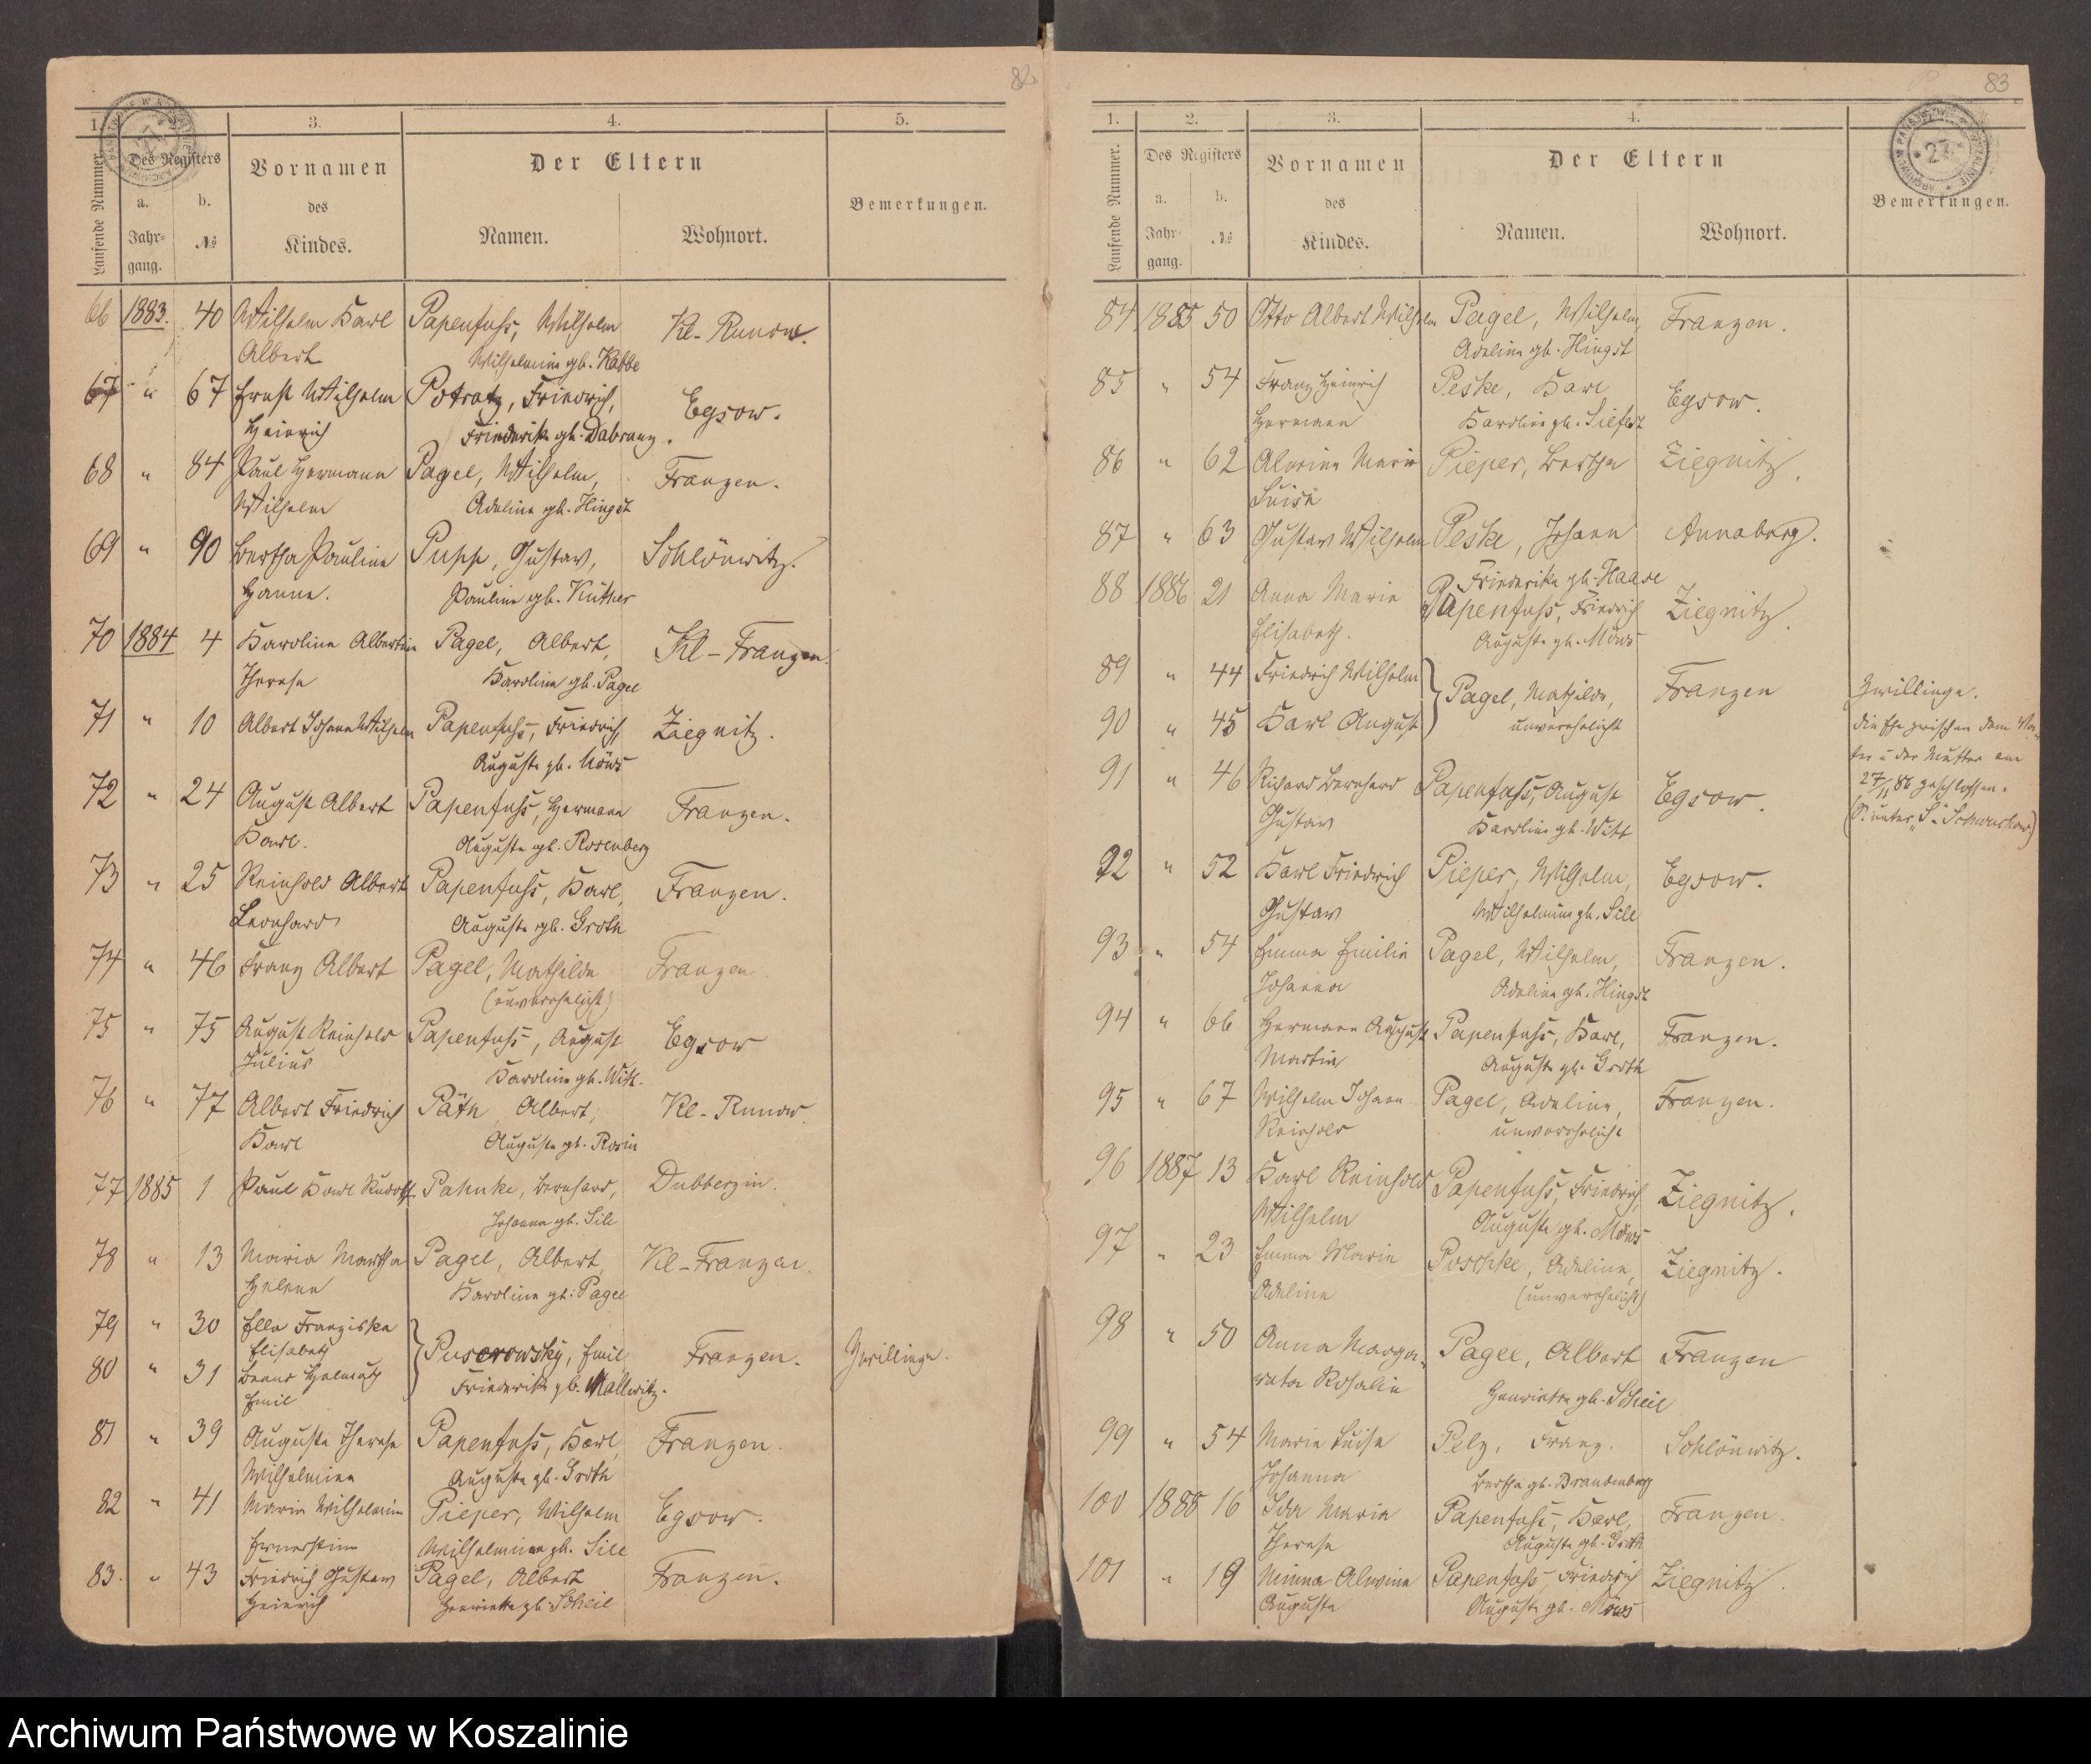 82
1. 2. 3. 4. 5.
Laufende Nummer.
Des Registers
a. Jahr-gang.
b. №
Vornamen des Kindes.
Der Eltern
Namen. Wohnort.
Bemerkungen.
66 1883. 40 Wilhelm Karl Papenfuhs, Wilhelm Kl-Runow.
Albert Wilhelmine gb. Kabbe
67 " 67 Ernst Wilhelm Potratz, Friedrich, Egsow.
Heinrich Friederike gb. Dabranz.
68 " 84 Paul Hermann Pagel, Wilhelm, Franzen.
Wilhelm Adeline gb. Hingst
69 " 90 Bertha Pauline Pupp, Gustav, Schlönwitz.
Hanne. Pauline gb. Küther
70 1884 4 Karoline Albertine Pagel, Albert, Kl-Franzen.
Therese Karoline gb. Pagel
71 " 10 Albert Johann Wilhelm Papenfuhs, Friedrich, Ziegnitz.
Auguste gb. Möws
72 " 24 August Albert Papenfuhs, Hermann Franzen.
Karl. Auguste gb. Rosenberg
73 " 25 Reinhold Albert Papenfuhs, Karl, Franzen.
Leonhard Auguste gb. Groth
74 " 46 Franz Albert Pagel, Mathilde Franzen
(unverehelicht)
75 " 75 August Reinhold Papenfuhs, August Egsow
Julius Karoline gb. Witt.
76 " 77 Albert Friedrich Päth, Albert, Kl-Runow.
Karl Auguste gb. Rosin
77 1885 1 Paul Karl Rudolf Pahnke, Bernhard, Dubberzin.
Johanna gb. Sill
78 " 13 Maria Martha Pagel, Albert, Kl-Franzen.
Helene Karoline gb. Pagel
79 " 30 Ella Franziska
Elisabeth Puserowsky, Emil Franzen. Zwillinge.
80 " 31 Helmuth Friederike gb. Mallwitz.
Emil
81 " 39 Auguste Therese Papenfuhs, Karl, Franzen.
Wilhelmine Auguste gb. Groth
82 " 41 Maria Wilhelmine Pieper, Wilhelm Egsow.
Ernestine Wilhelmine gb. Sill
83. " 43 Friedrich Gustav Pagel, Albert Franzen.
Heinrich Henriette gb. Scheil
83
1. 2. 3. 4.
Laufende Nummer.
Des Registers
a. Jahr-gang.
b. №
Vornamen des Kindes.
Der Eltern
Namen. Wohnort.
Bemerkungen.
84 1885 50 Otto Albert Wilhelm Pagel, Wilhelm, Franzen.
Adeline gb. Hingst
85 " 54 Franz Heinrich Peske, Karl Egsow.
Hermann Karoline gb.
86 " 62 Alwine Marie Pieper, Bertha Ziegnitz.
Luise
87 " 63 Gustav Wilhelm Peske, Johann Annaberg.
Friederike gb. Haase
88 1886 21 Anna Marie Papenfuhs, Friedrich Ziegnitz.
Elisabeth. Auguste gb. Möws
89 " 44 Friedrich Wilhelm Pagel, Mathilde, Franzen Zwillinge.
90 " 45 Karl August unverehelicht Die Ehe zwischen dem Va-
ter u der Mutter am
91 " 46 Richard Bernhard Papenfuhs, August Egsow. 27/11 86 geschlossen.
Gustav Karoline gb. Witt
92 " 52 Karl Friedrich Pieper, Wilhelm, Egsow.
Gustav Wilhelmine gb. Sill
93 " 54 Emma Emilie Pagel, Wilhelm, Franzen.
Johanna Adeline gb. Hingst
94 " 66 Hermann August Papenfuhs, Karl, Franzen.
Martin Auguste gb. Groth
95 " 67 Wilhelm Johann Pagel, Adeline, Franzen.
Reinhold unverehelicht
96 1887 13 Karl Reinhold Papenfuhs, Friedrich, Ziegnitz.
Wilhelm Auguste gb. Möws
97 " 23 Emma Marie Poschke, Adeline, Ziegnitz.
Adeline (unverehelicht)
98 " 50 Anna Marga- Pagel, Albert Franzen
reta Rosalie Henriette gb. Scheil
99 " 54 Marie Luise Pelz, Franz. Schlönwitz.
Johanna Bertha gb. Brandenburg
100 1888 16 Ida Maria Papenfuhs, Karl, Franzen.
Therese Auguste gb. Groth
101 " 19 Minna Alwine Papenfuhs, Friedrich Ziegnitz.
Auguste Auguste gb. Möws
Archiwum Państwowe w Koszalinie